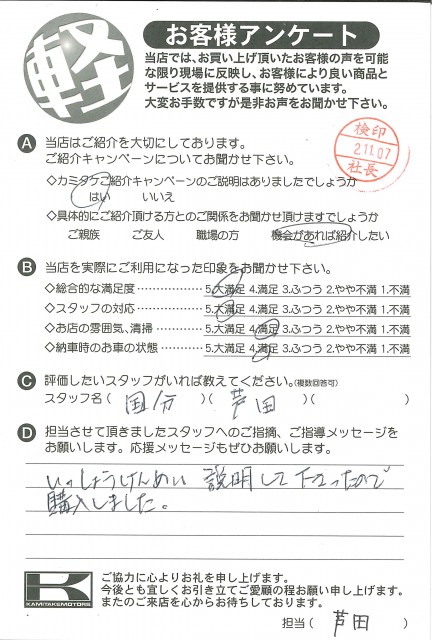 軽
お客様アンケート
当店では、お買い上げ頂いたお客様の声を可能
な限り現場に反映し、お客様により良い商品と
サービスを提供する事に努めています。
大変お手数ですが是非お声をお聞かせ下さい。
検印
2.11.07
社長
A 当店はご紹介を大切にしております。
ご紹介キャンペーンについてお聞かせ下さい。
◇カミタケご紹介キャンペーンのご説明はありましたでしょうか
はい いいえ
◇具体的にご紹介頂ける方とのご関係をお聞かせ頂けますでしょうか
ご親族 ご友人 職場の方 機会があれば紹介したい
B 当店を実際にご利用になった印象をお聞かせ下さい。
◇総合的な満足度 ················ 5.大満足 4.満足 3.ふつう 2.やや不満 1.不満
◇スタッフの対応 ················ 5.大満足 4.満足 3.ふつう 2.やや不満 1.不満
◇お店の雰囲気、清掃 ········· 5.大満足 4.満足 3.ふつう 2.やや不満 1.不満
◇納車時のお車の状態 ········· 5.大満足 4.満足 3.ふつう 2.やや不満 1.不満
C 評価したいスタッフがいれば教えてください。(複数回答可)
スタッフ名( 国分 )( 芦田 )( )
D 担当させて頂きましたスタッフへのご指摘、ご指導メッセージを
お願いします。応援メッセージもぜひお願いします。
いっしょうけんめい 説明して下さったので
購入しました。
K
KAMITAKEMOTORS
ご協力に心よりお礼を申し上げます。
今後とも宜しくお引き立てご愛顧の程お願い申し上げます。
またのご来店を心からお待ちしております。
担当( 芦田 )